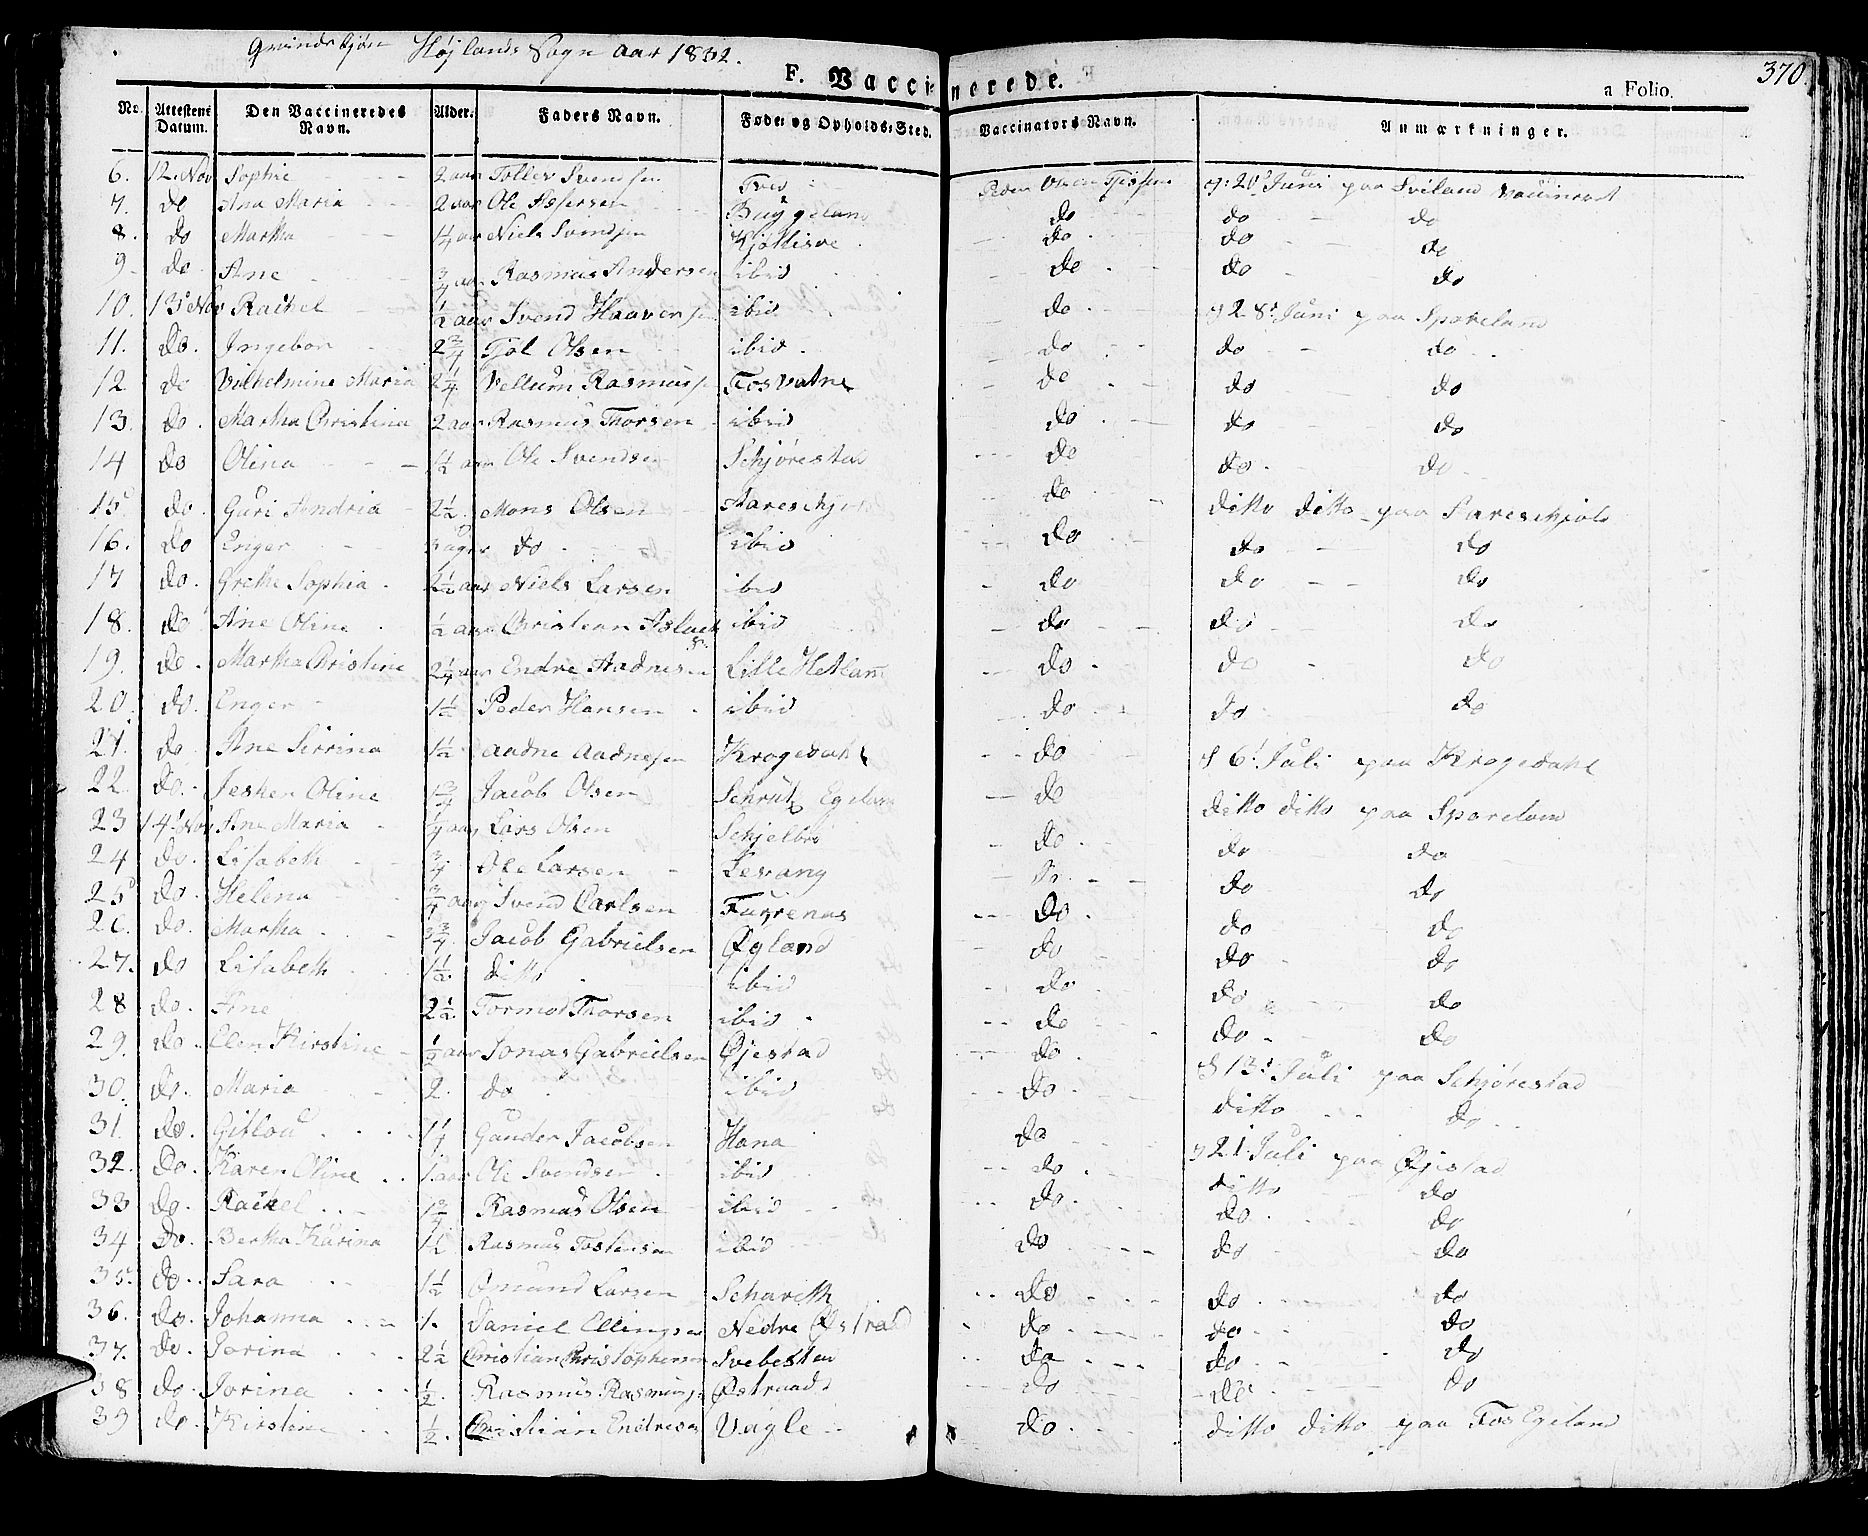 Grindskjön Højlands Sogn Aar 1832.
370.
F. Vaccinerede.
a Folio.
No. Attestens Datum. Den Vaccineredes Navn. Alder. Faders Navn. Føde- og Opholds-Sted. Vaccinators Navn. Anmærkninger.
6. 12. Nov Sophie 2 aar Tollev Svendsen Tved Peder Olsen d: 20de Juni paa Sviland Vaccineret
7. do Ana Maria 2 aar Ole Buggeland do do do
8. do Martha 1/4 aar Niels Svendsen do do do
9 do Ane 3/4 aar Rasmus Andersen ibid do do do
10. 13 Nov Rachel 1/2 aar Svend Haaversen ibid do d 28. Juni paa Spareland
11. do. Ingebor 2 3/4 Tjøl Olsen ibid. do do do
12 do Vilhelmine Maria 2 1/4 Vellum Rasmuss Fosvatne do do do
13. do. Martha Christina 2 aar Rasmus Thorsen ibid do do do
14 do Olina 1 1/2 aar Ole Svendsen Schjørestad do do. do
15 do. Guri Andria 2 1/2. Mons Olsen do ditto ditto paa
16. do Enger do ibid do do do
17 do. Grethe Sophia. 2 1/2 aar Niels Larsen ibid do do do
18. do Ane Oline 1/2 aar Christian Aslach ibid do do do
19. do. Martha Christine 2 1/4 aar Endre Aadnesen Lille Hetland do. do do
20. do. Enger 1 1/2 Peder Hansen ibid do do do
21 do Ane Serrina 1 1/2 Aadne Aadnesen Krogedahl do d 6. Juli paa Krogedahl
22. do. Jesken Oline 1 3/4 Jacob Olsen Egeland do ditto ditto paa Spareland
23 14. Nov Ane Maria aar Lars Olsen Schjelbr do. do do
24 do. Lisabeth 3/4 Ole Larsen Levang do do
25 do Helena 3/4 aar Svend Carlsen Furrenas do. do do
26. do. Martha 3 3/4. Jacob Gabrielsen Øgland do do do
27. do Lisabeth 1 1/2. ditto ibid do do do
28 do. Ane 2 1/2. Tormod Thorsen ibid do do. do
29. do. Elen Kirstine 1/2 aar Jonas Gabrielsen Øjestad do. d 13. Juli paa Schjørestad
30. do. Maria 2. do ibid do. ditto do
31. do. Gitlou 1 1/4 Gunder Jacobsen Hana do d 21. Juli paa Øjestad
32. do. Karen Oline 1. aar Ole Svendsen ibid do ditto do
33 do. Rachel 1 3/4 Rasmus Olsen ibid do. do. do
34 do. Bertha Karina 1 1/2 Rasmus Tostensen ibid do do do
35. do. Sara 1 1/2 Omund Larsen Schareth do do do
36. do. Johanna 1. Daniel Ellingsen Nedre Østraad do do do
37. do. Jorina 2 1/2 Christian Christophersen Svebestad do do. do
38 do. Jorina 1/2. Rasmus Rasmuss Østraad do do do
39 do. Kirstine 1/2. Christian Endresen Vagle do. ditto ditto paa Fos Egeland